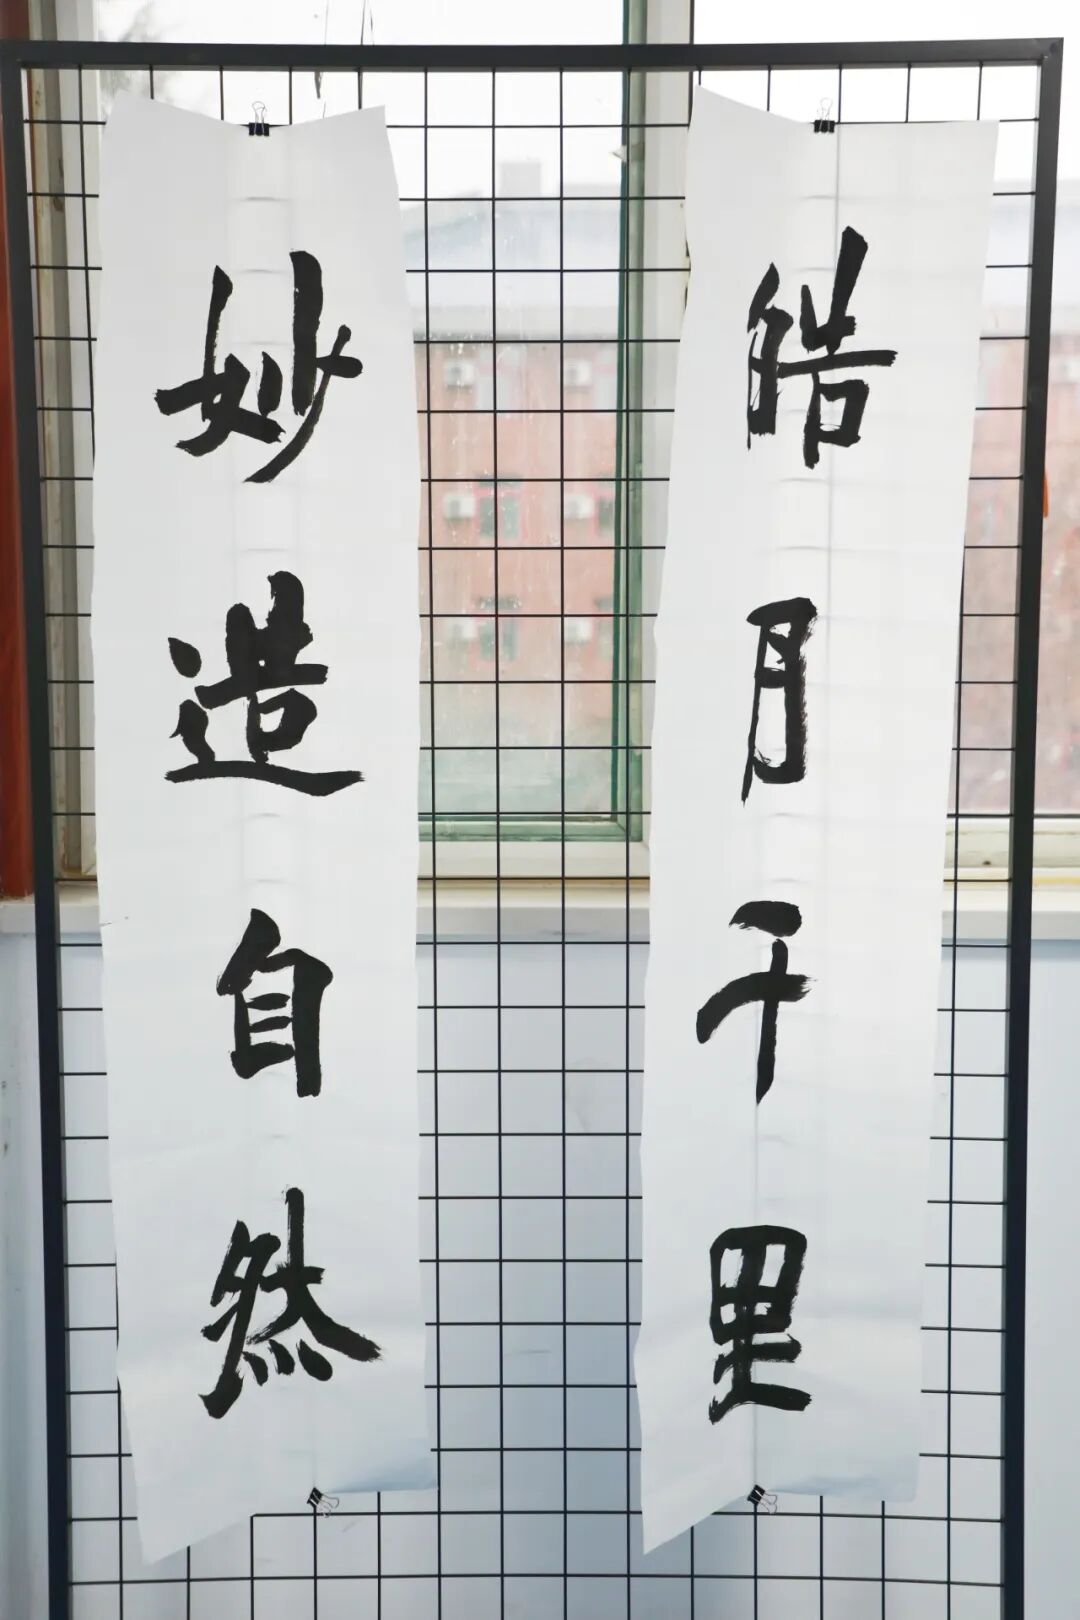 皓月千里
妙造自然